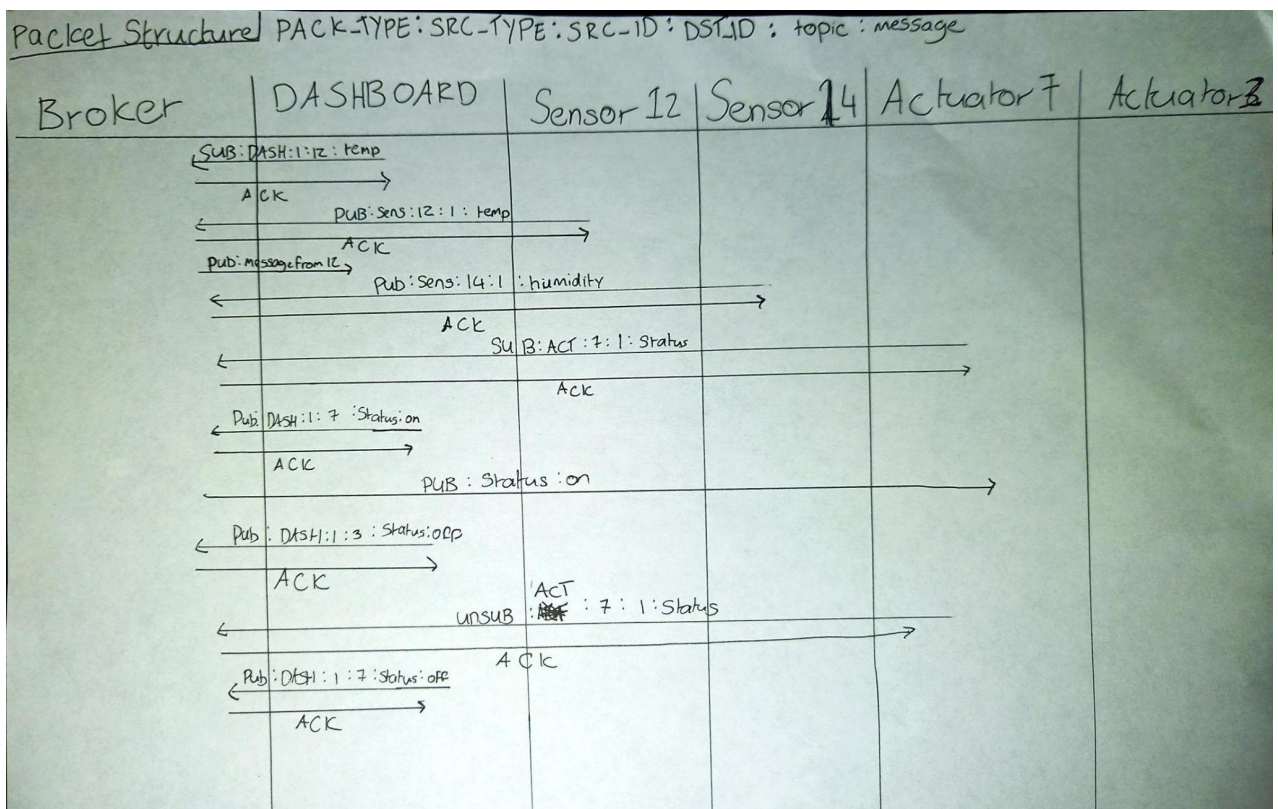 Packet Structure PACK_TYPE: SRC_TYPE: SRC-ID: DST_ID : topic : message
Broker DASHBOARD Sensor 12 Sensor 14 Actuator 7 Actuator
SUB:DASH:1:12: temp
ACK
PUB: Sens:12:1: temp
ACK
Pub: message from 12
Pub: Sens: 14:1 : humidity
ACK
SUB: ACT : 7: 1: Status
ACK
Pub: DASH: 1: 7 : Status: on
ACK
PUB : Status : on
Pub : DASH:1:3 : Status: off
ACK
ACT
unsub : : 7 : 1 : Status
ACK
Pub : DASH : 1 : 7 : Status: off
ACK